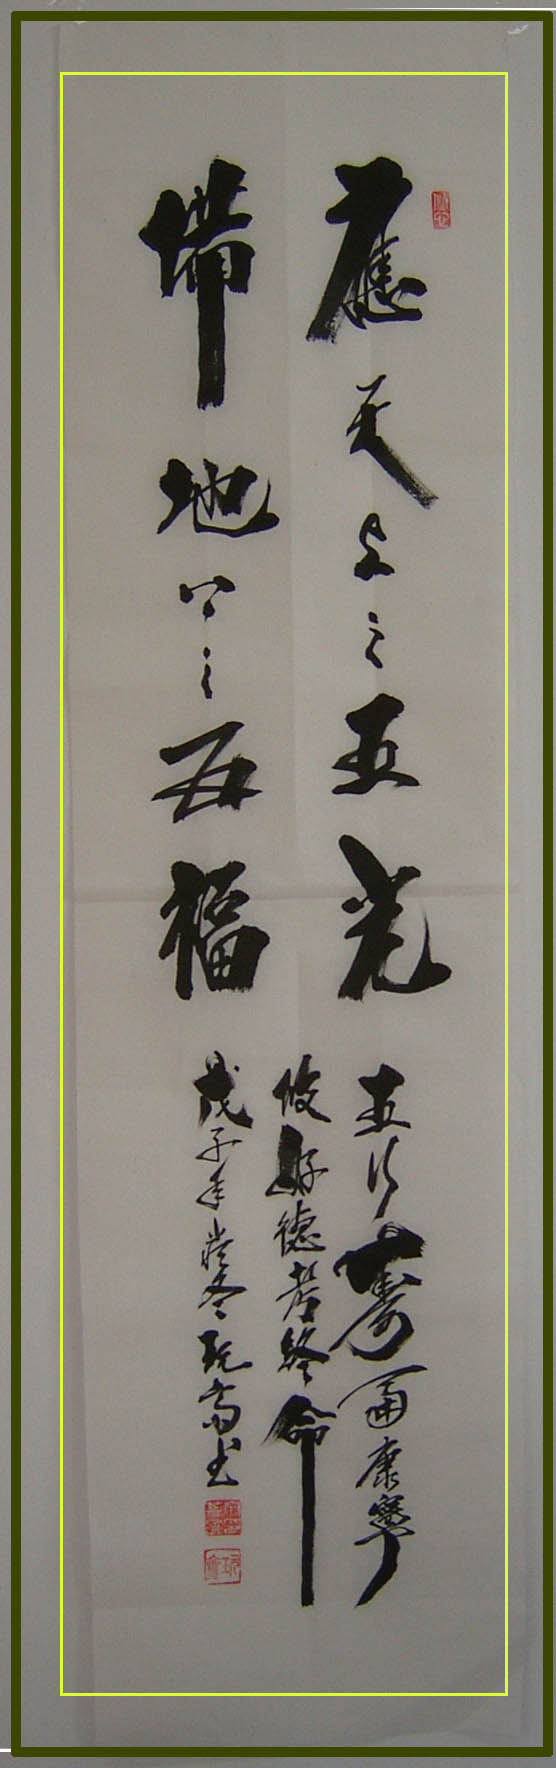 應天上之五光
備地下之五福
五行壽富康寧
攸好德考終命
戊子年 冬 齋書